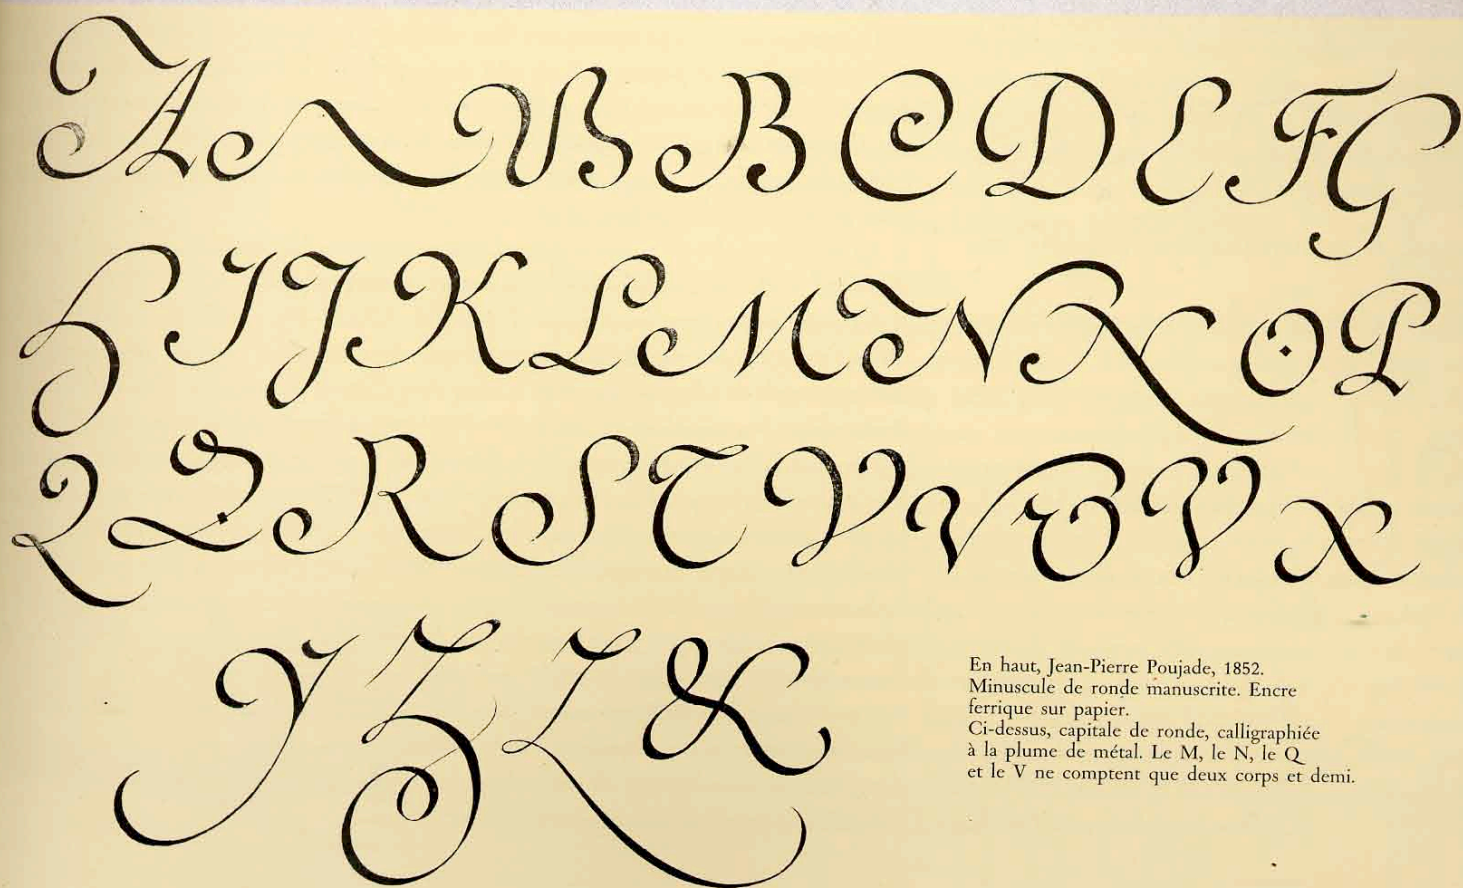 A B B C D E F G
H I J K L M N N O P
Q Q R S T V V V X
Y Z Z &
En haut, Jean-Pierre Poujade, 1852.
Minuscule de ronde manuscrite. Encre
ferrique sur papier.
Ci-dessus, capitale de ronde, calligraphiée
à la plume de métal. Le M, le N, le Q
et le V ne comptent que deux corps et demi.